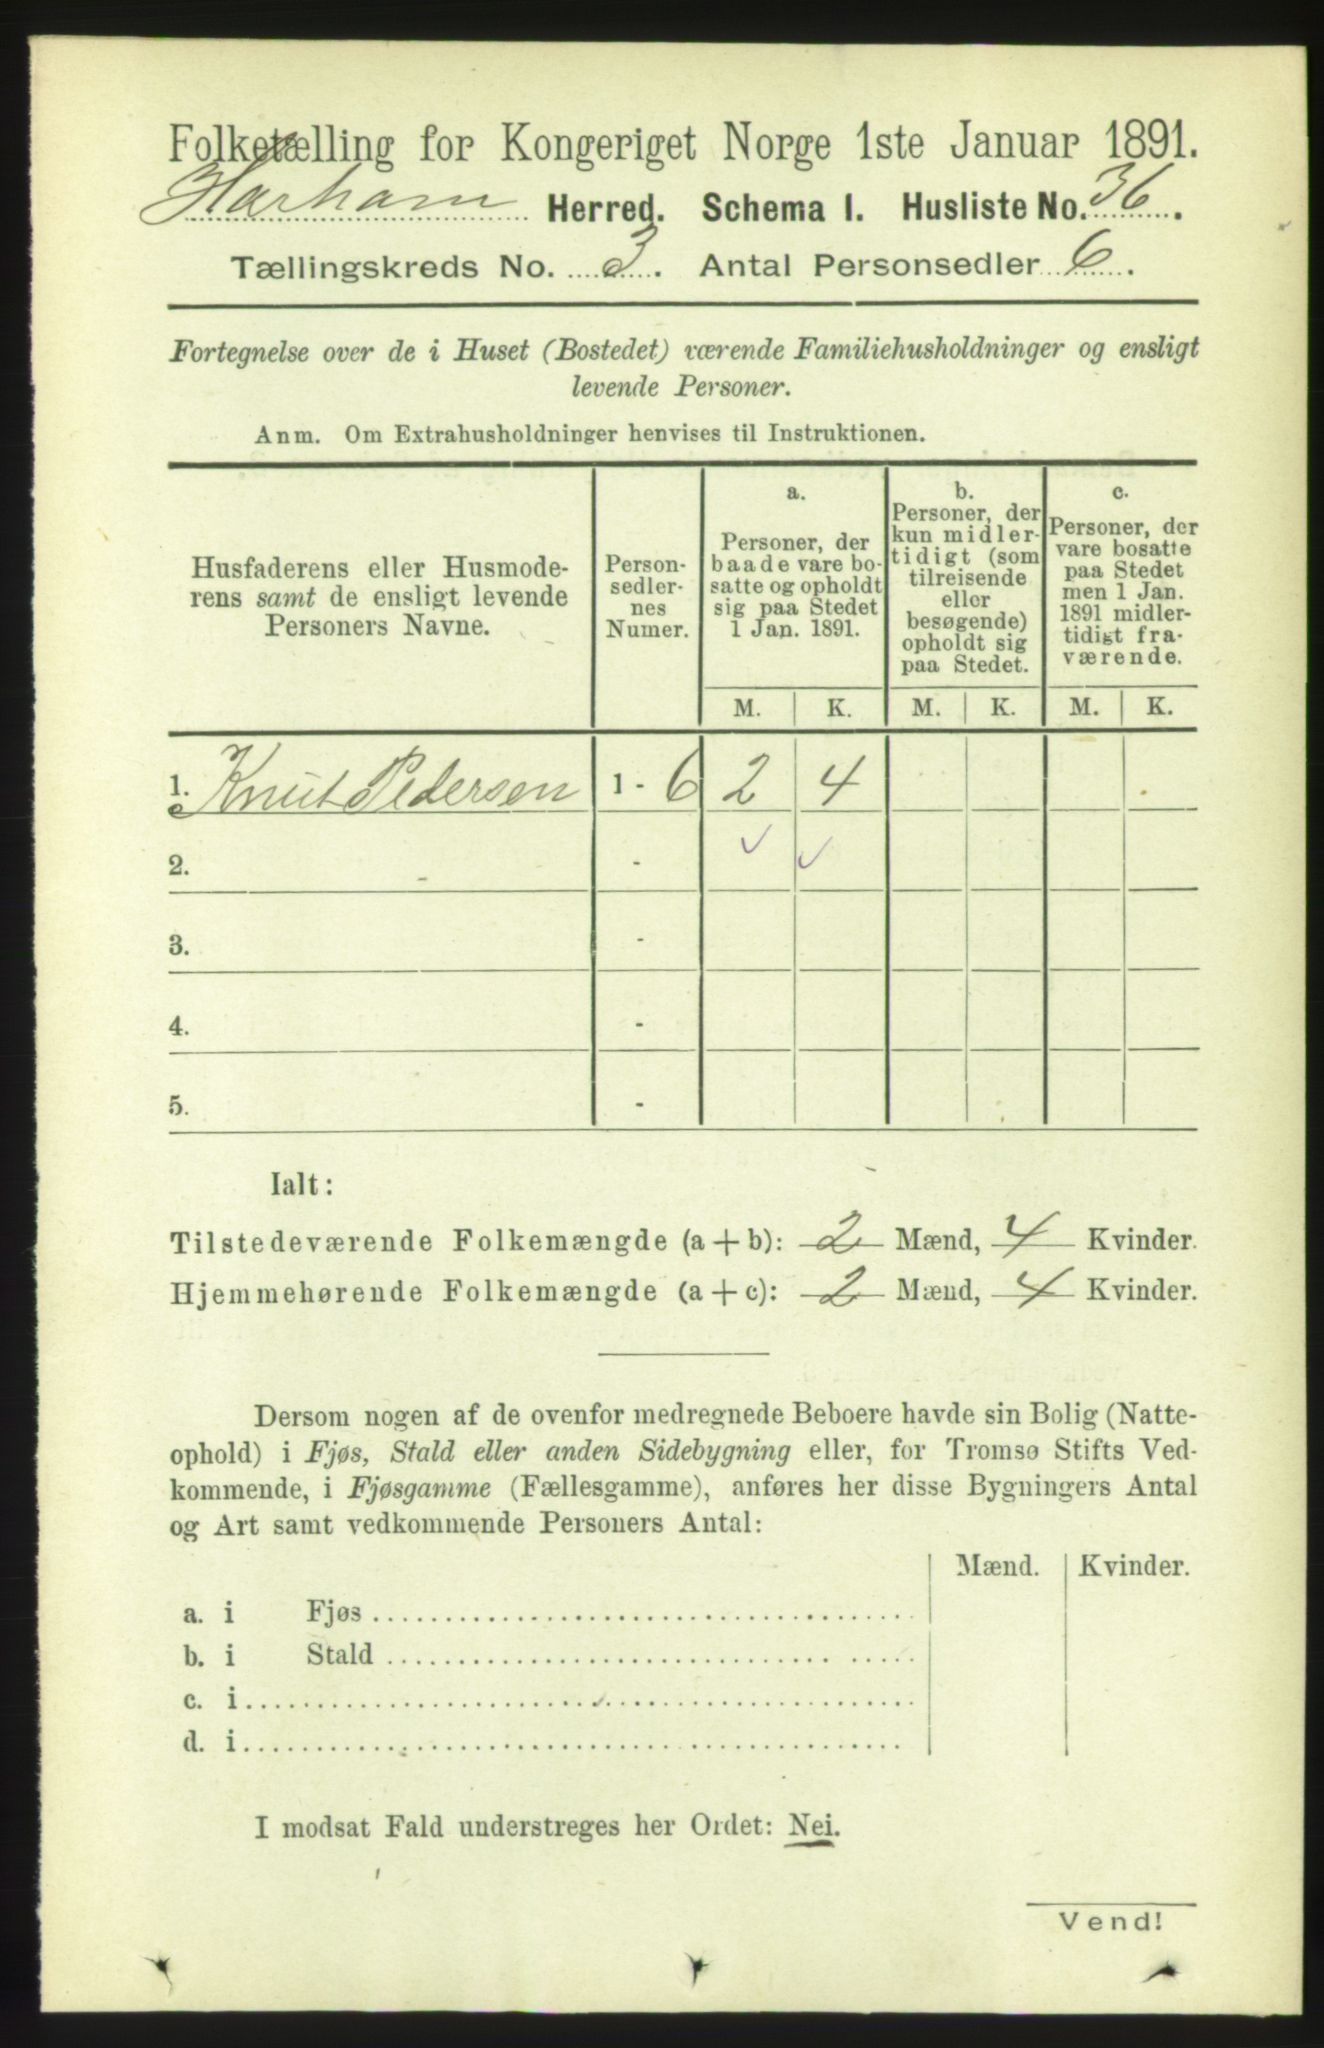 Folketælling for Kongeriget Norge 1ste Januar 1891.
Harham Herred. Schema I. Husliste No. 36.
Tællingskreds No. 3. Antal Personsedler 6.
Fortegnelse over de i Huset (Bostedet) værende Familiehusholdninger og ensligt
levende Personer.
Anm. Om Extrahusholdninger henvises til Instruktionen.
Husfaderens eller Husmode-
rens samt de ensligt levende
Personers Navne.
Person-
sedler-
nes
Numer.
a.
Personer, der
baade vare bo-
satte og opholdt
sig paa Stedet
1 Jan. 1891.
b.
Personer, der
kun midler-
tidigt (som
tilreisende
eller
besøgende)
opholdt sig
paa Stedet.
c.
Personer, der
vare bosatte
paa Stedet
men 1 Jan.
1891 midler-
tidigt fra-
værende.
M. K. M. K. M. K.
1. Knut Pedersen 1 - 6 2 4
2. - ✓ ✓
3. -
4. -
5. -
Ialt:
Tilstedeværende Folkemængde (a + b): 2 Mænd, 4 Kvinder.
Hjemmehørende Folkemængde (a + c): 2 Mænd, 4 Kvinder.
Dersom nogen af de ovenfor medregnede Beboere havde sin Bolig (Natte-
ophold) i Fjøs, Stald eller anden Sidebygning eller, for Tromsø Stifts Ved-
kommende, i Fjøsgamme (Fællesgamme), anføres her disse Bygningers Antal
og Art samt vedkommende Personers Antal:
Mænd. Kvinder.
a. i Fjøs
b. i Stald
c. i
d. i
I modsat Fald understreges her Ordet: Nei.
Vend!